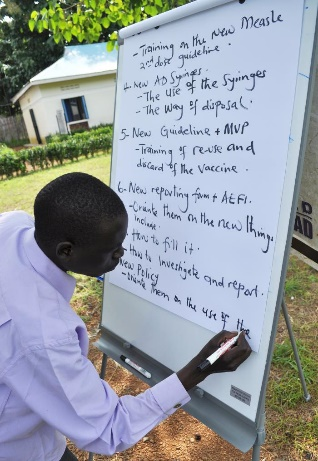 - Training on the New Measle
2nd dose guideline.
4. New AD Syinges.
- The use of the Syinges
- The way of disposal.
5- New Guideline + MVP
- Training of re-use and
discard of the vaccine.
6- New reporting form + AEFI.
- Orient them on the new things
include.
- How to fill it.
- How to investigate and report.
New Policy
- Orient them on the use of the
D
AD